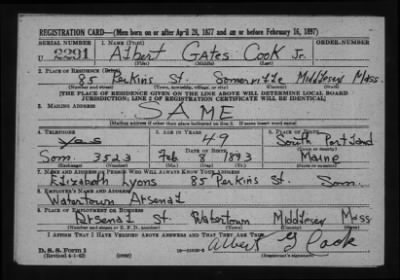 REGISTRATION CARD—(Men born on or after April 28, 1877 and on or before February 16, 1897)
SERIAL NUMBER 1. NAME (Print) ORDER NUMBER
U 2291 Albert Gates Cook Jr.
(First) (Middle) (Last)
2. PLACE OF RESIDENCE (Print)
85 Perkins St. Somerville Middlesex Mass.
(Number and street) (Town, township, village, or city) (County) (State)
[THE PLACE OF RESIDENCE GIVEN ON THE LINE ABOVE WILL DETERMINE LOCAL BOARD
JURISDICTION; LINE 2 OF REGISTRATION CERTIFICATE WILL BE IDENTICAL]
3. MAILING ADDRESS
SAME
[Mailing address if other than place indicated on line 2. If same insert word same]
4. TELEPHONE 5. AGE IN YEARS 6. PLACE OF BIRTH
yes 49 South Portland
DATE OF BIRTH
Som. 3523 Feb 8 1893 Maine
(Exchange) (Number) (Mo.) (Day) (Yr.) (State or country)
7. NAME AND ADDRESS OF PERSON WHO WILL ALWAYS KNOW YOUR ADDRESS
Elizabeth Lyons 85 Perkins St. Som.
8. EMPLOYER'S NAME AND ADDRESS
Watertown Arsenal
9. PLACE OF EMPLOYMENT OR BUSINESS
Arsenal St. Watertown Middlesex Mass
(Number and street or R. F. D. number) (Town) (County) (State)
I AFFIRM THAT I HAVE VERIFIED ABOVE ANSWERS AND THAT THEY ARE TRUE.
D. S. S. Form 1
(Revised 4-1-42) (over)
Albert G Cook